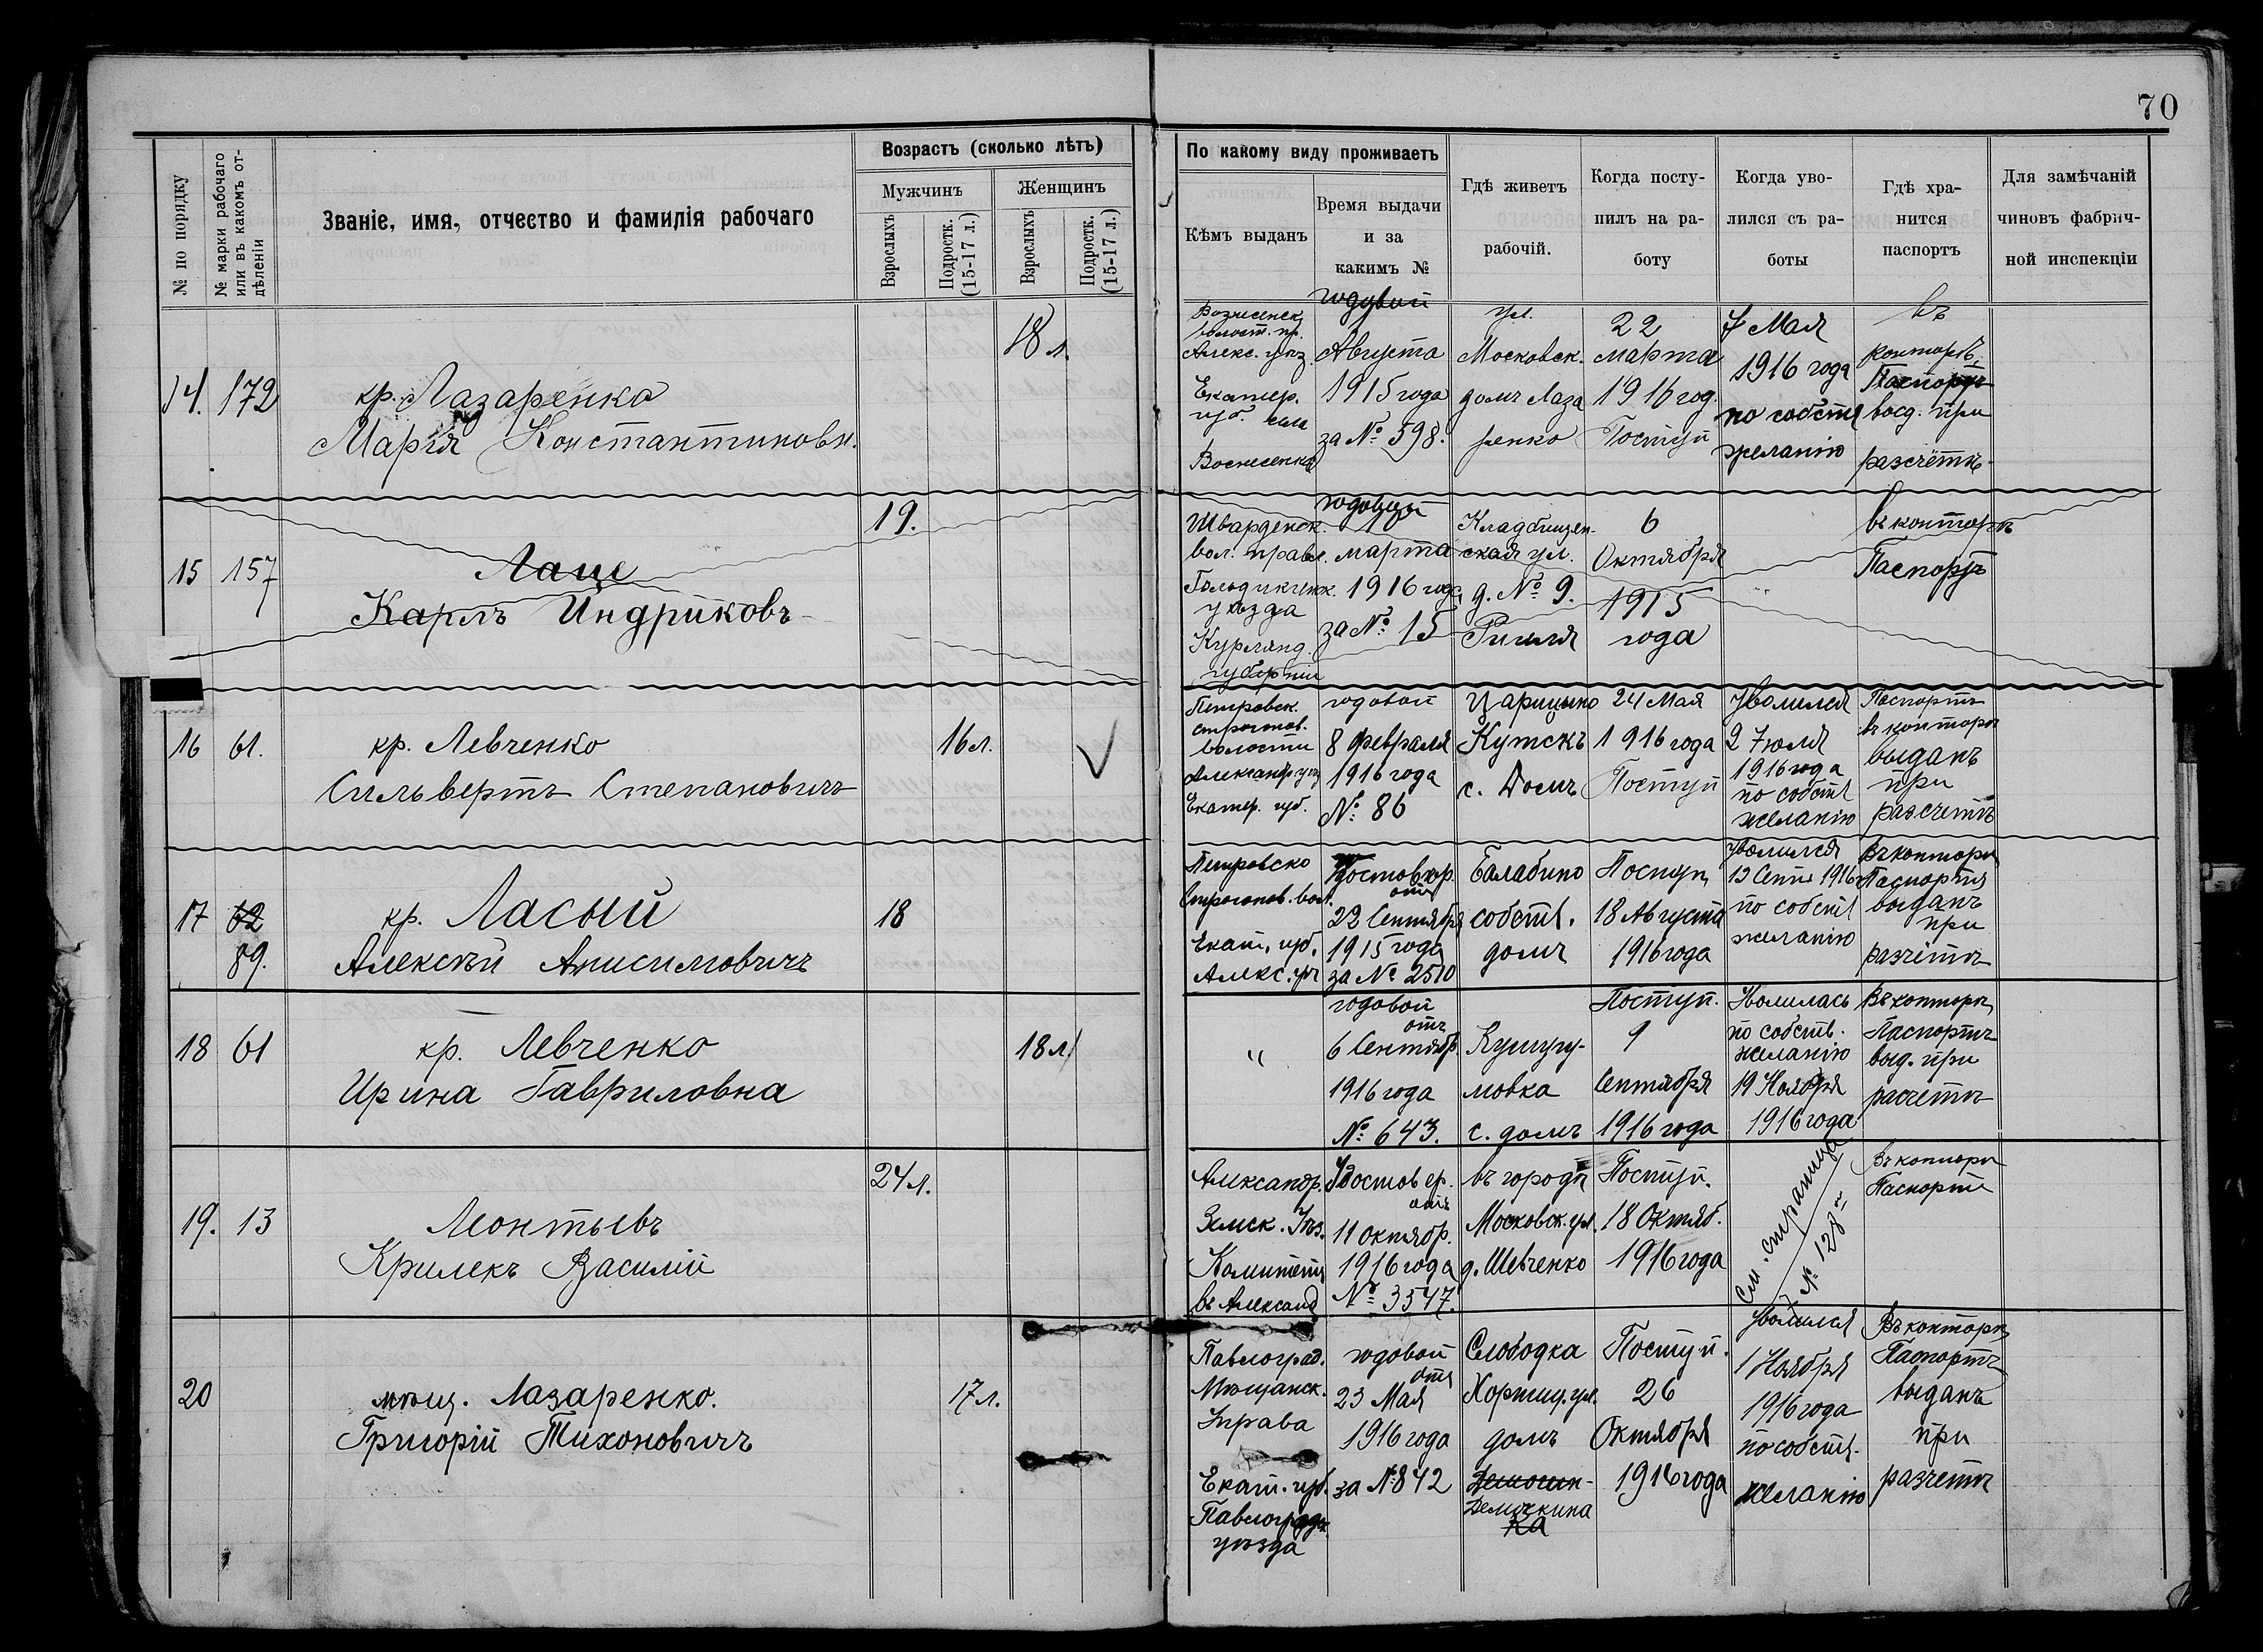 70
№ по порядку
№ марки рабочаго или въ какомъ отдѣленіи
Званіе, имя, отчество и фамилія рабочаго
Возрастъ (сколько лѣтъ)
Мужчинъ
Женщинъ
Взрослыхъ
Подростк. (15-17 л.)
Взрослыхъ
Подростк. (15-17 л.)
По какому виду проживаетъ
Кѣмъ выданъ
Время выдачи
и за
какимъ №
Гдѣ живетъ
рабочій.
Когда посту-
пилъ на ра-
боту
Когда уво-
лился съ ра-
боты
Гдѣ хра-
нится
паспортъ
Для замѣчаній
чиновъ фабрич-
ной инспекціи
14. 172
кр. Лазаренка
Марія Константиновн.
18 л.
Вознесенск.
волост. пр.
Алекс. уѣз.
Екатер.
губ. села
Воснесенка
годовой
Августа
1915 года
за № 598.
ул.
Московск.
домъ Лаза
ренко
22
марта
1916 год.
Поступ
7 Мая
1916 года
по собств
желанію
въ
конторѣ
Паспортъ
выд. при
разсчетѣ
15 157
Лаце
Карлъ Индриковъ
19.
вол. правл.
уѣзда
Курлянд.
губерніи
годовой
10
марта
1916 года
за № 15
Кладбищен-
ская ул.
д. № 9.
6
Октября
1915
года
въ конторѣ
Паспортъ
16 61.
кр. Левченко
Сильверстъ Степановичъ
16 л.
Петровск.
волости
Александ. уѣз
Екатер. губ.
годовой
8 февраля
1916 года
№ 86
Царицыно
Кутскъ
с. Домъ
24 Мая
1916 года
Поступ
Уволился
2 Іюля
1916 года
по собств
желанію
Паспортъ
въ конторѣ
выданъ
при
разсчетѣ
17 62
89.
кр. Ласый
Алексѣй Анисимовичъ
18
Петровско
Строганов. вол.
Екат. губ.
Алекс. уѣ
отъ
22 Сентября
1915 года
за № 2510
Балабино
собств.
домъ
Поступ
18 Августа
1916 года
уволился
13 Сент 1916
по собств
желанію
Въ конторѣ
Паспортъ
выданъ
при
разчётѣ
18 61
кр. Левченко
Ирина Гавриловна
18 л.
"
годовой
отъ
6 Сентябр.
1916 года
№ 643.
Кушугу-
мовка
с. домъ
Поступ.
9
Сентября
1916 года
Уволилась
по собств.
желанію
19 Ноября
1916 года
Въ конторѣ
Паспортъ
выд. при
расчётѣ
19. 13
Леонтьевъ
Крилекъ Василій
24 л.
Александр.
Земск. Уѣз.
Комитетъ
въ Александ
Удостовер.
отъ
11 октябр.
1916 года
№ 3547.
въ городѣ
Московск. ул.
д. Шевченко
Поступ.
18 Октяб.
1916 года
См. страница
№ 128
Въ конторѣ
Паспортъ
20
мѣщ. Лазаренко.
Григорій Тихоновичъ
17 л.
Павлоград.
Мѣщанск.
Управа
Екат. губ.
Павлоградск
уѣзда
годовой
отъ
23 Мая
1916 года
за № 842
Слободка
Хортиц. ул.
домъ
Демочкина
ка
Поступ.
26
Октября
1916 года
Уволился
1 Ноября
1916 года
по собств.
желанію
Въ конторѣ
Паспортъ
выданъ
при
разчетѣ